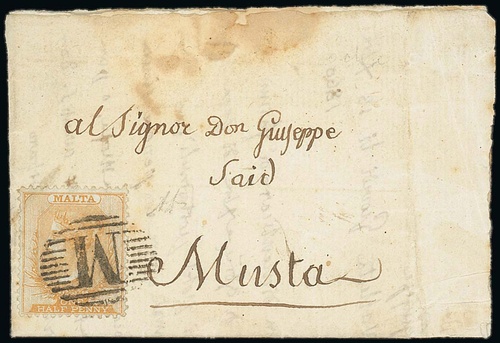 al Signor Don Giuseppe
Said
Musta
MALTA
M
HALF PENNY